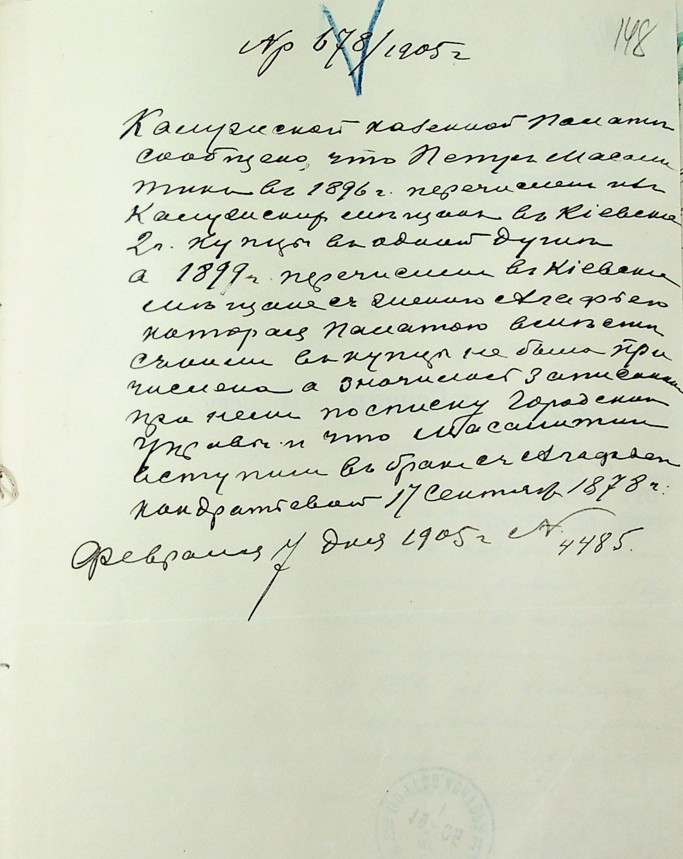 148
Ар 678/1905 г
Калужской Казенной Палаты
сообщено, что Петръ Масали
тинъ въ 1896 г. перечисленъ изъ
Калужскихъ мѣщанъ въ Кіевскіе
2 г. купцы въ одной душѣ
а 1899 г. перечисленъ въ Кіевскіе
мѣщане съ женою Агафьею
которая Палатою вмѣстѣ
съ нимъ въ купцы не была при
числена а значилась записанною
при немъ по списку Городской
Управы и что Масалитинъ
вступилъ въ бракъ съ Агафьей
Кондратьевой 17 Сентября 1878 г.
Февраля 7 дня 1905 г. № 4485.